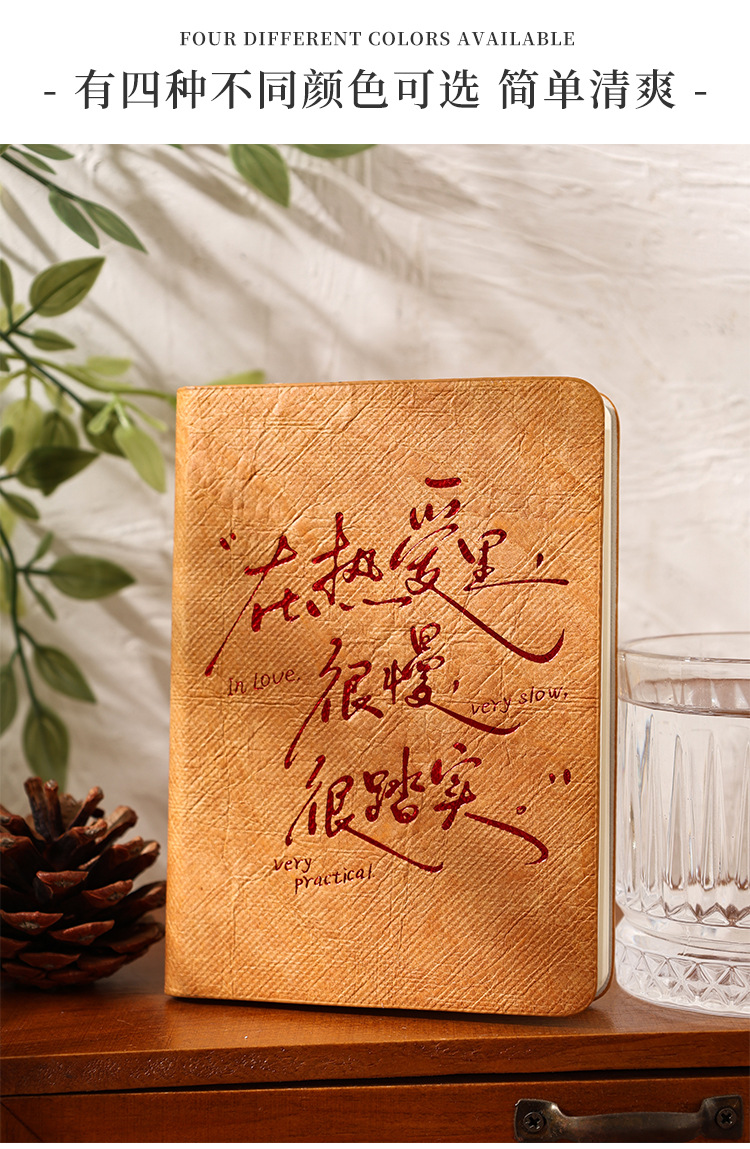 FOUR DIFFERENT COLORS AVAILABLE
- 有四种不同颜色可选 简单清爽 -
“在热爱里,
In Love.
很慢,
very slow,
很踏实。”
very
practical.